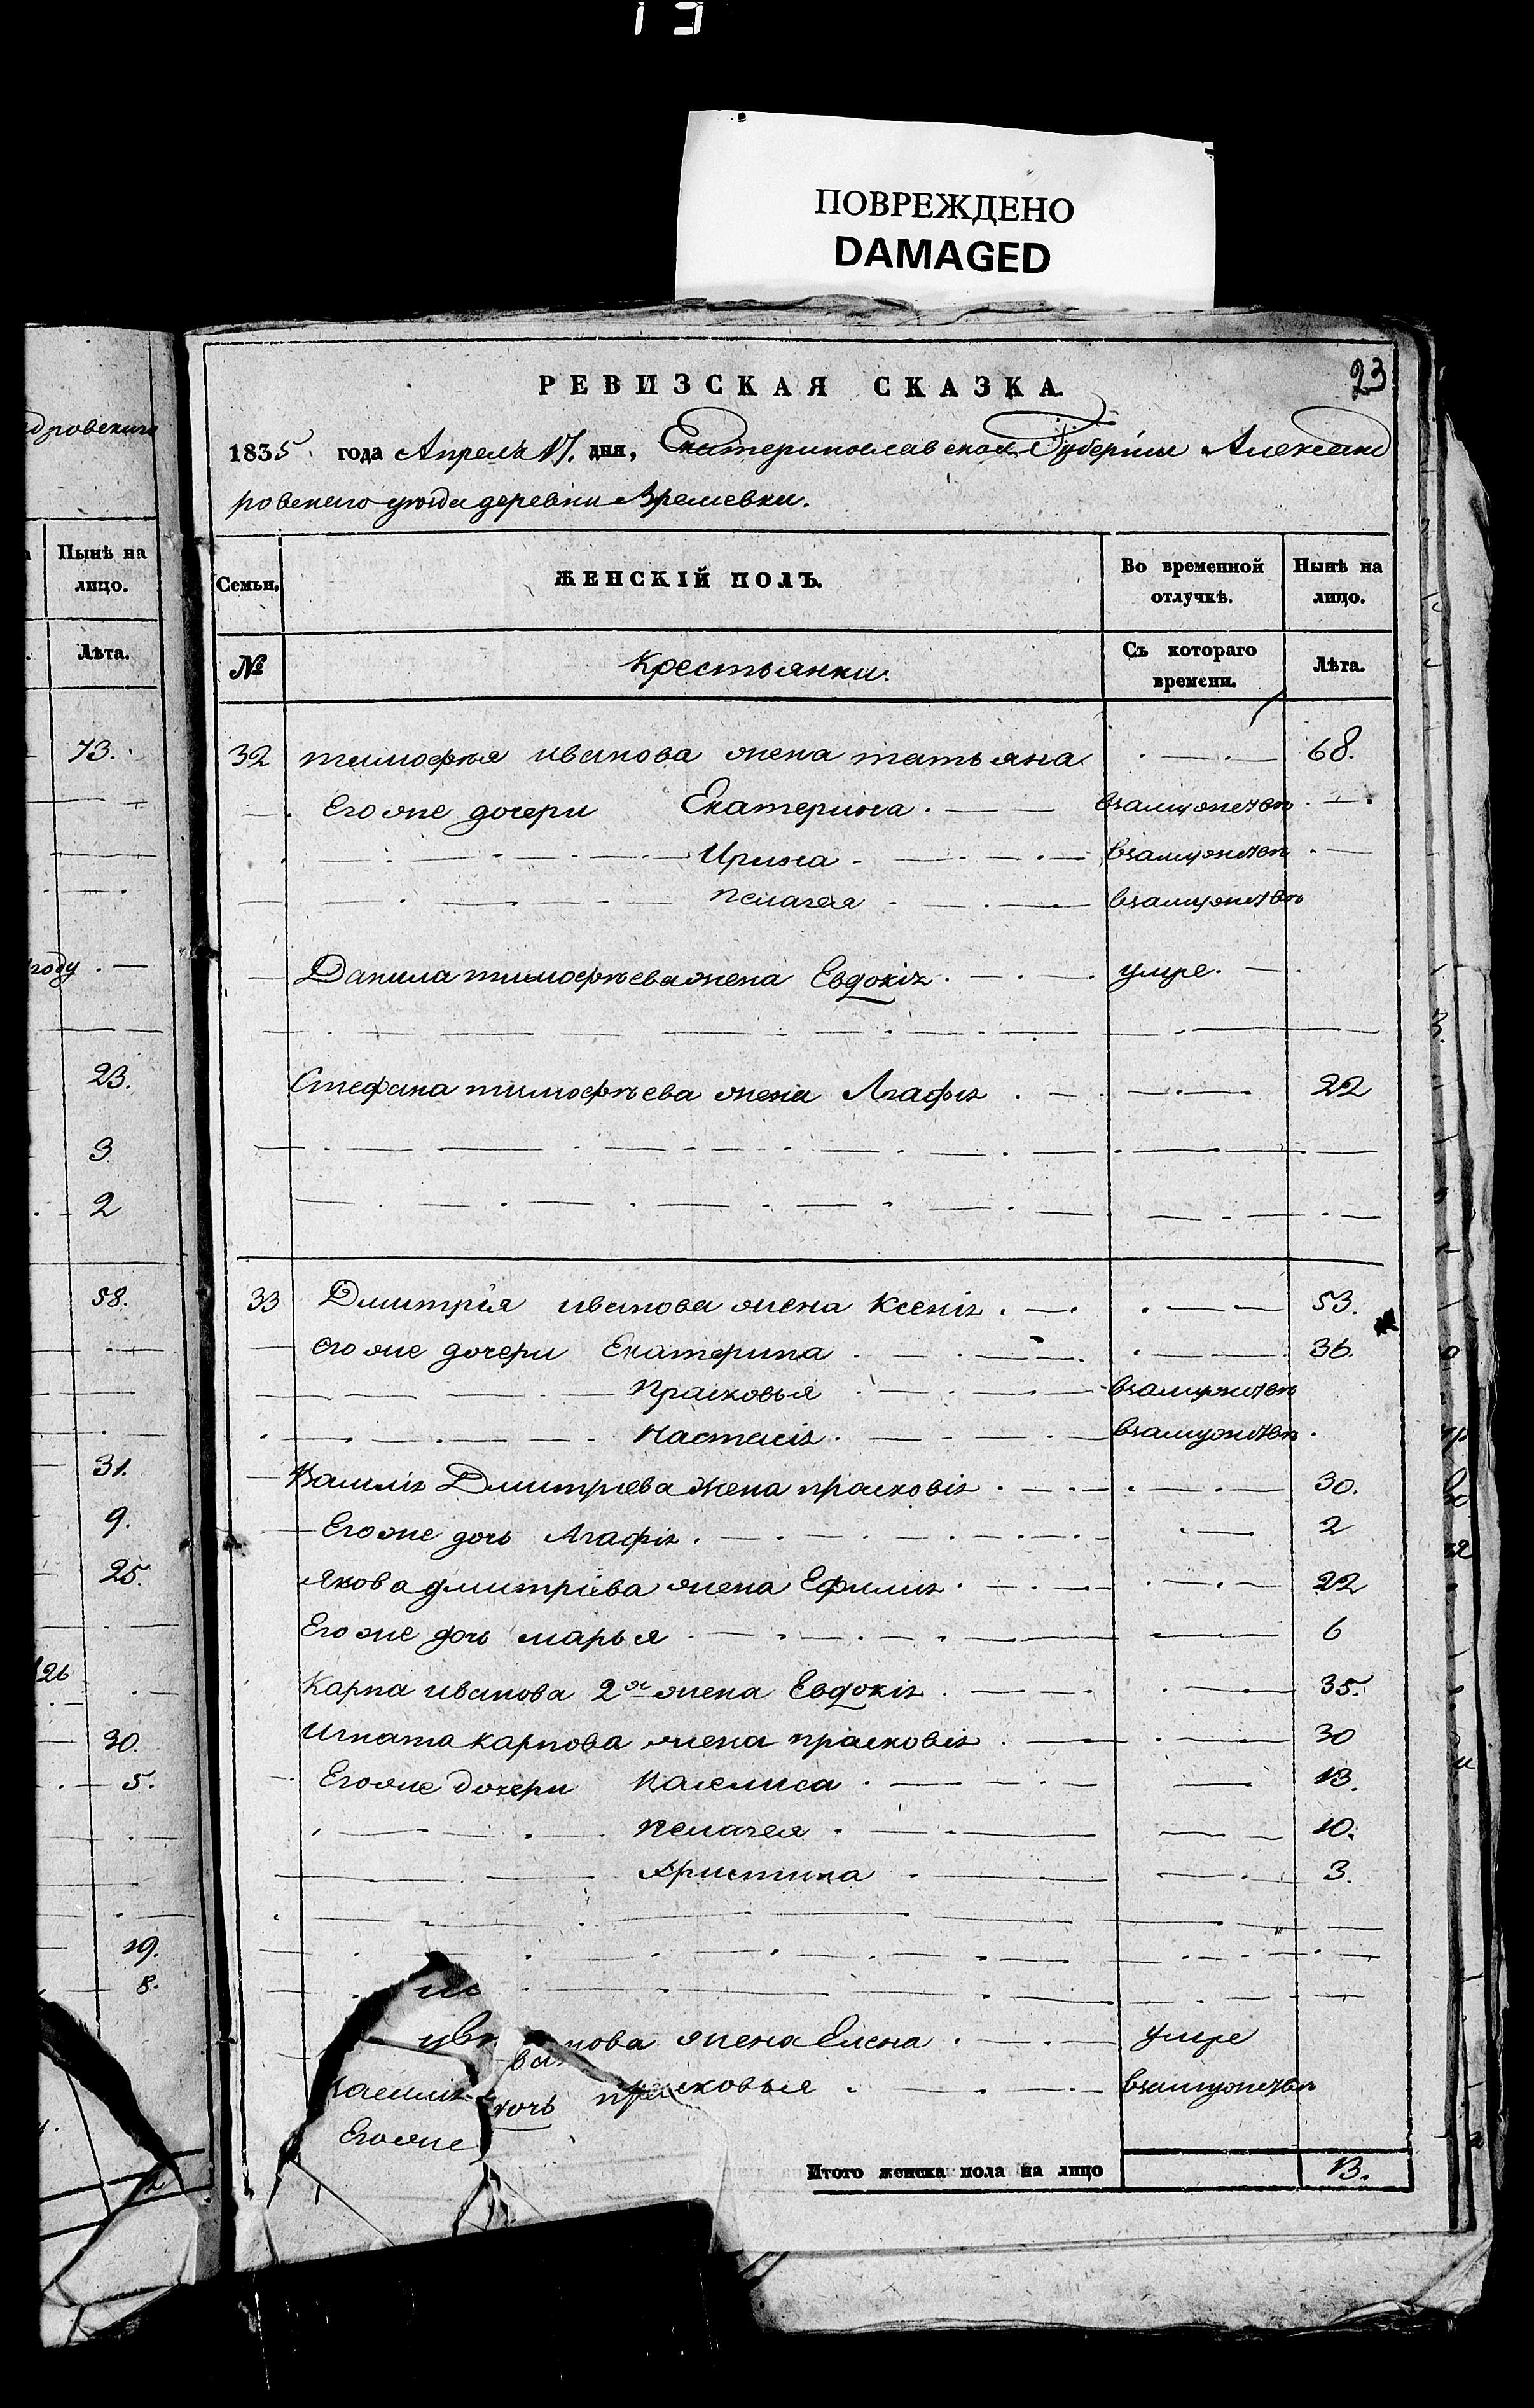 ПОВРЕЖДЕНО
DAMAGED
23
РЕВИЗСКАЯ СКАЗКА.
1835 года Апреля 17. дня, Екатеринославской Губерніи Александ
ровскаго уѣзда деревни Времевки.
Семьи. ЖЕНСКІЙ ПОЛЪ. Во временной отлучкѣ. Нынѣ на лицо.
№ Крестьянки. Съ котораго времени. Лѣта.
32 тимофѣя иванова жена татьяна 68.
Его же дочери Екатерина взамужствѣ
Ирина взамужствѣ
пелагея взамужствѣ
Данила тимофѣева жена Евдокія умре.
Стефана тимофѣева жена Агафія 22
33 Дмитрія иванова жена Ксенія 53.
его же дочери Екатерина 36.
Прасковья взамужствѣ
Настасія взамужствѣ
Василія Дмитріева жена прасковія 30.
Его же дочь Агафія 2
Якова дмитріева жена Ефимія 22
Его же дочь марья 6
Карпа иванова 2я жена Евдокія 35.
Игната карпова жена прасковія 30
Его же дочери Василиса 13.
пелагея 10.
Христина 3.
нова жена Елена умре
Василія
дочь прасковья взамужствѣ
Его же
Итого женска пола на лицо 13.
дровскаго
Нынѣ на
лицо.
Лѣта.
73.
году
23.
3
2
58.
31.
9.
25.
126
30.
5.
19.
8.